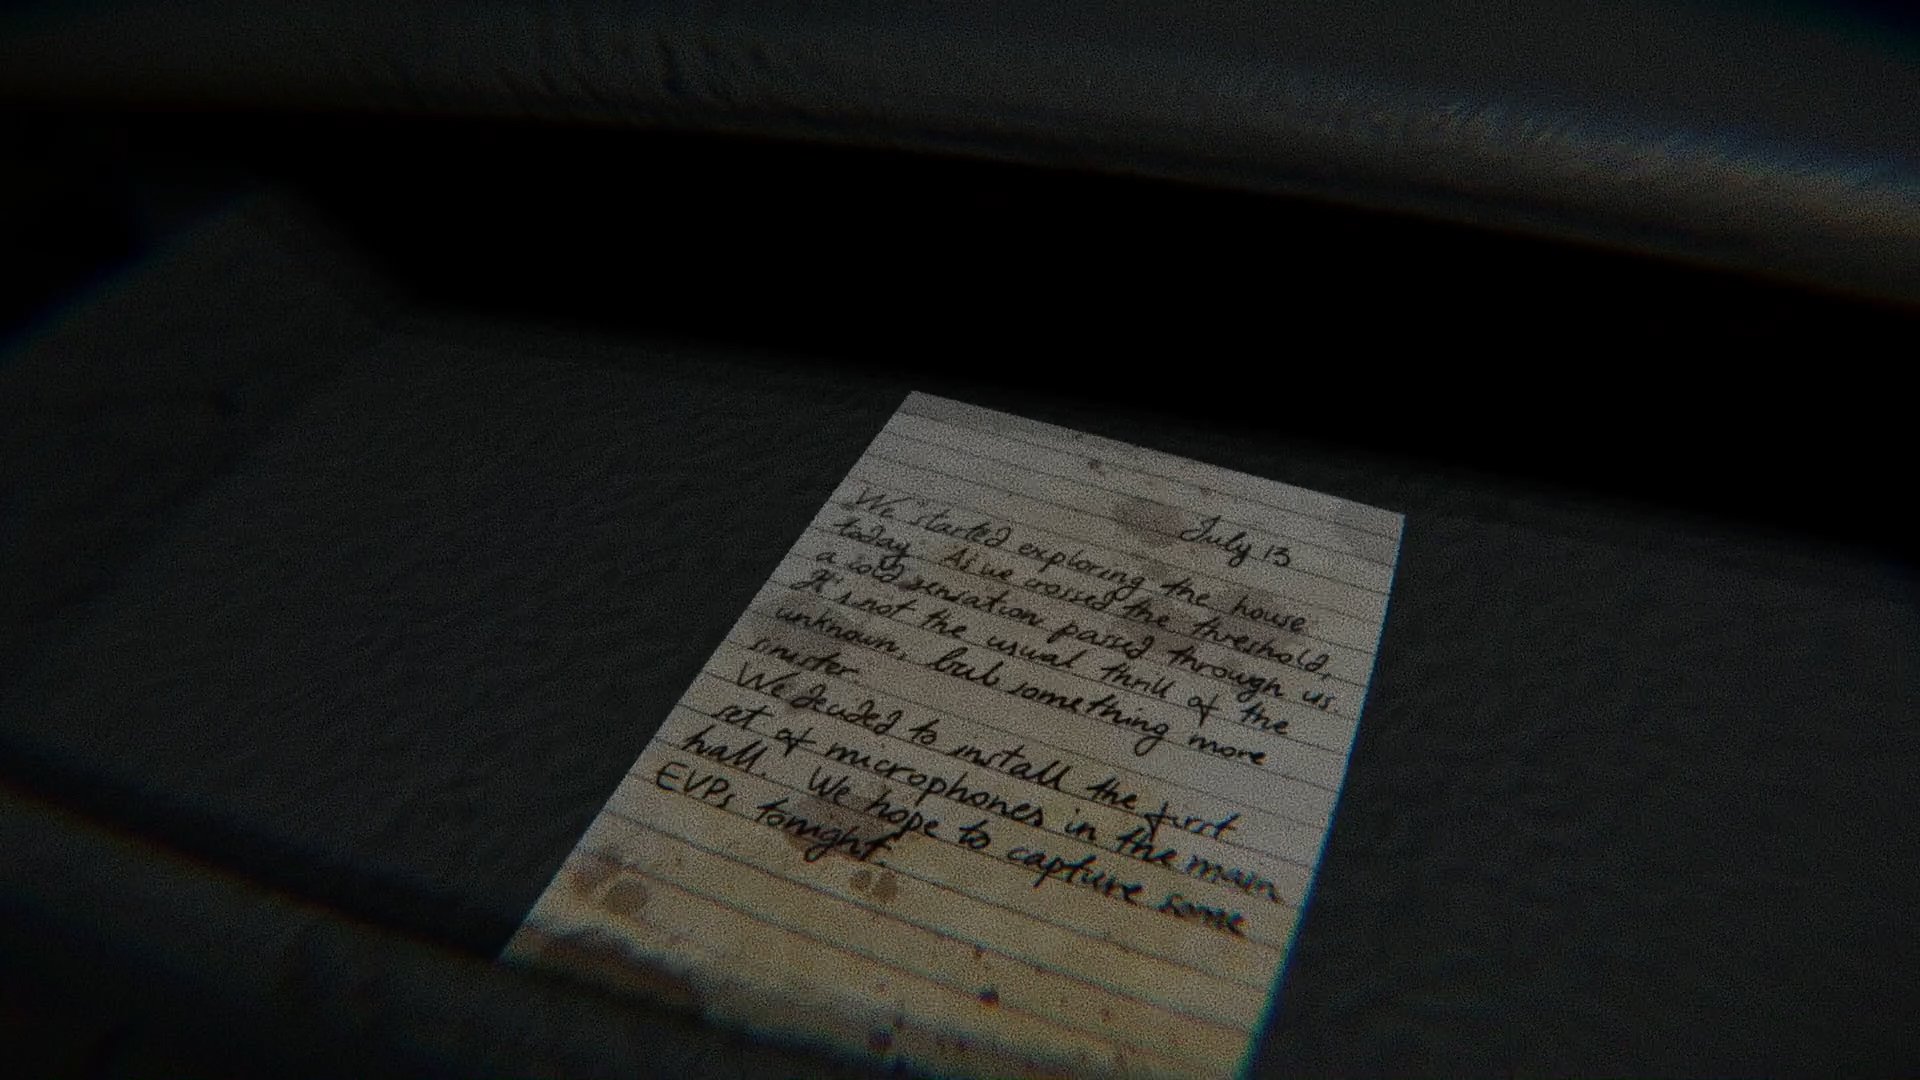 July 13
We started exploring the house
today. As we crossed the threshold,
a cold sensation passed through us.
It's not the usual thrill of the
unknown, but something more
sinister.
We decided to install the first
set of microphones in the main
hall. We hope to capture some
EVPs tonight.